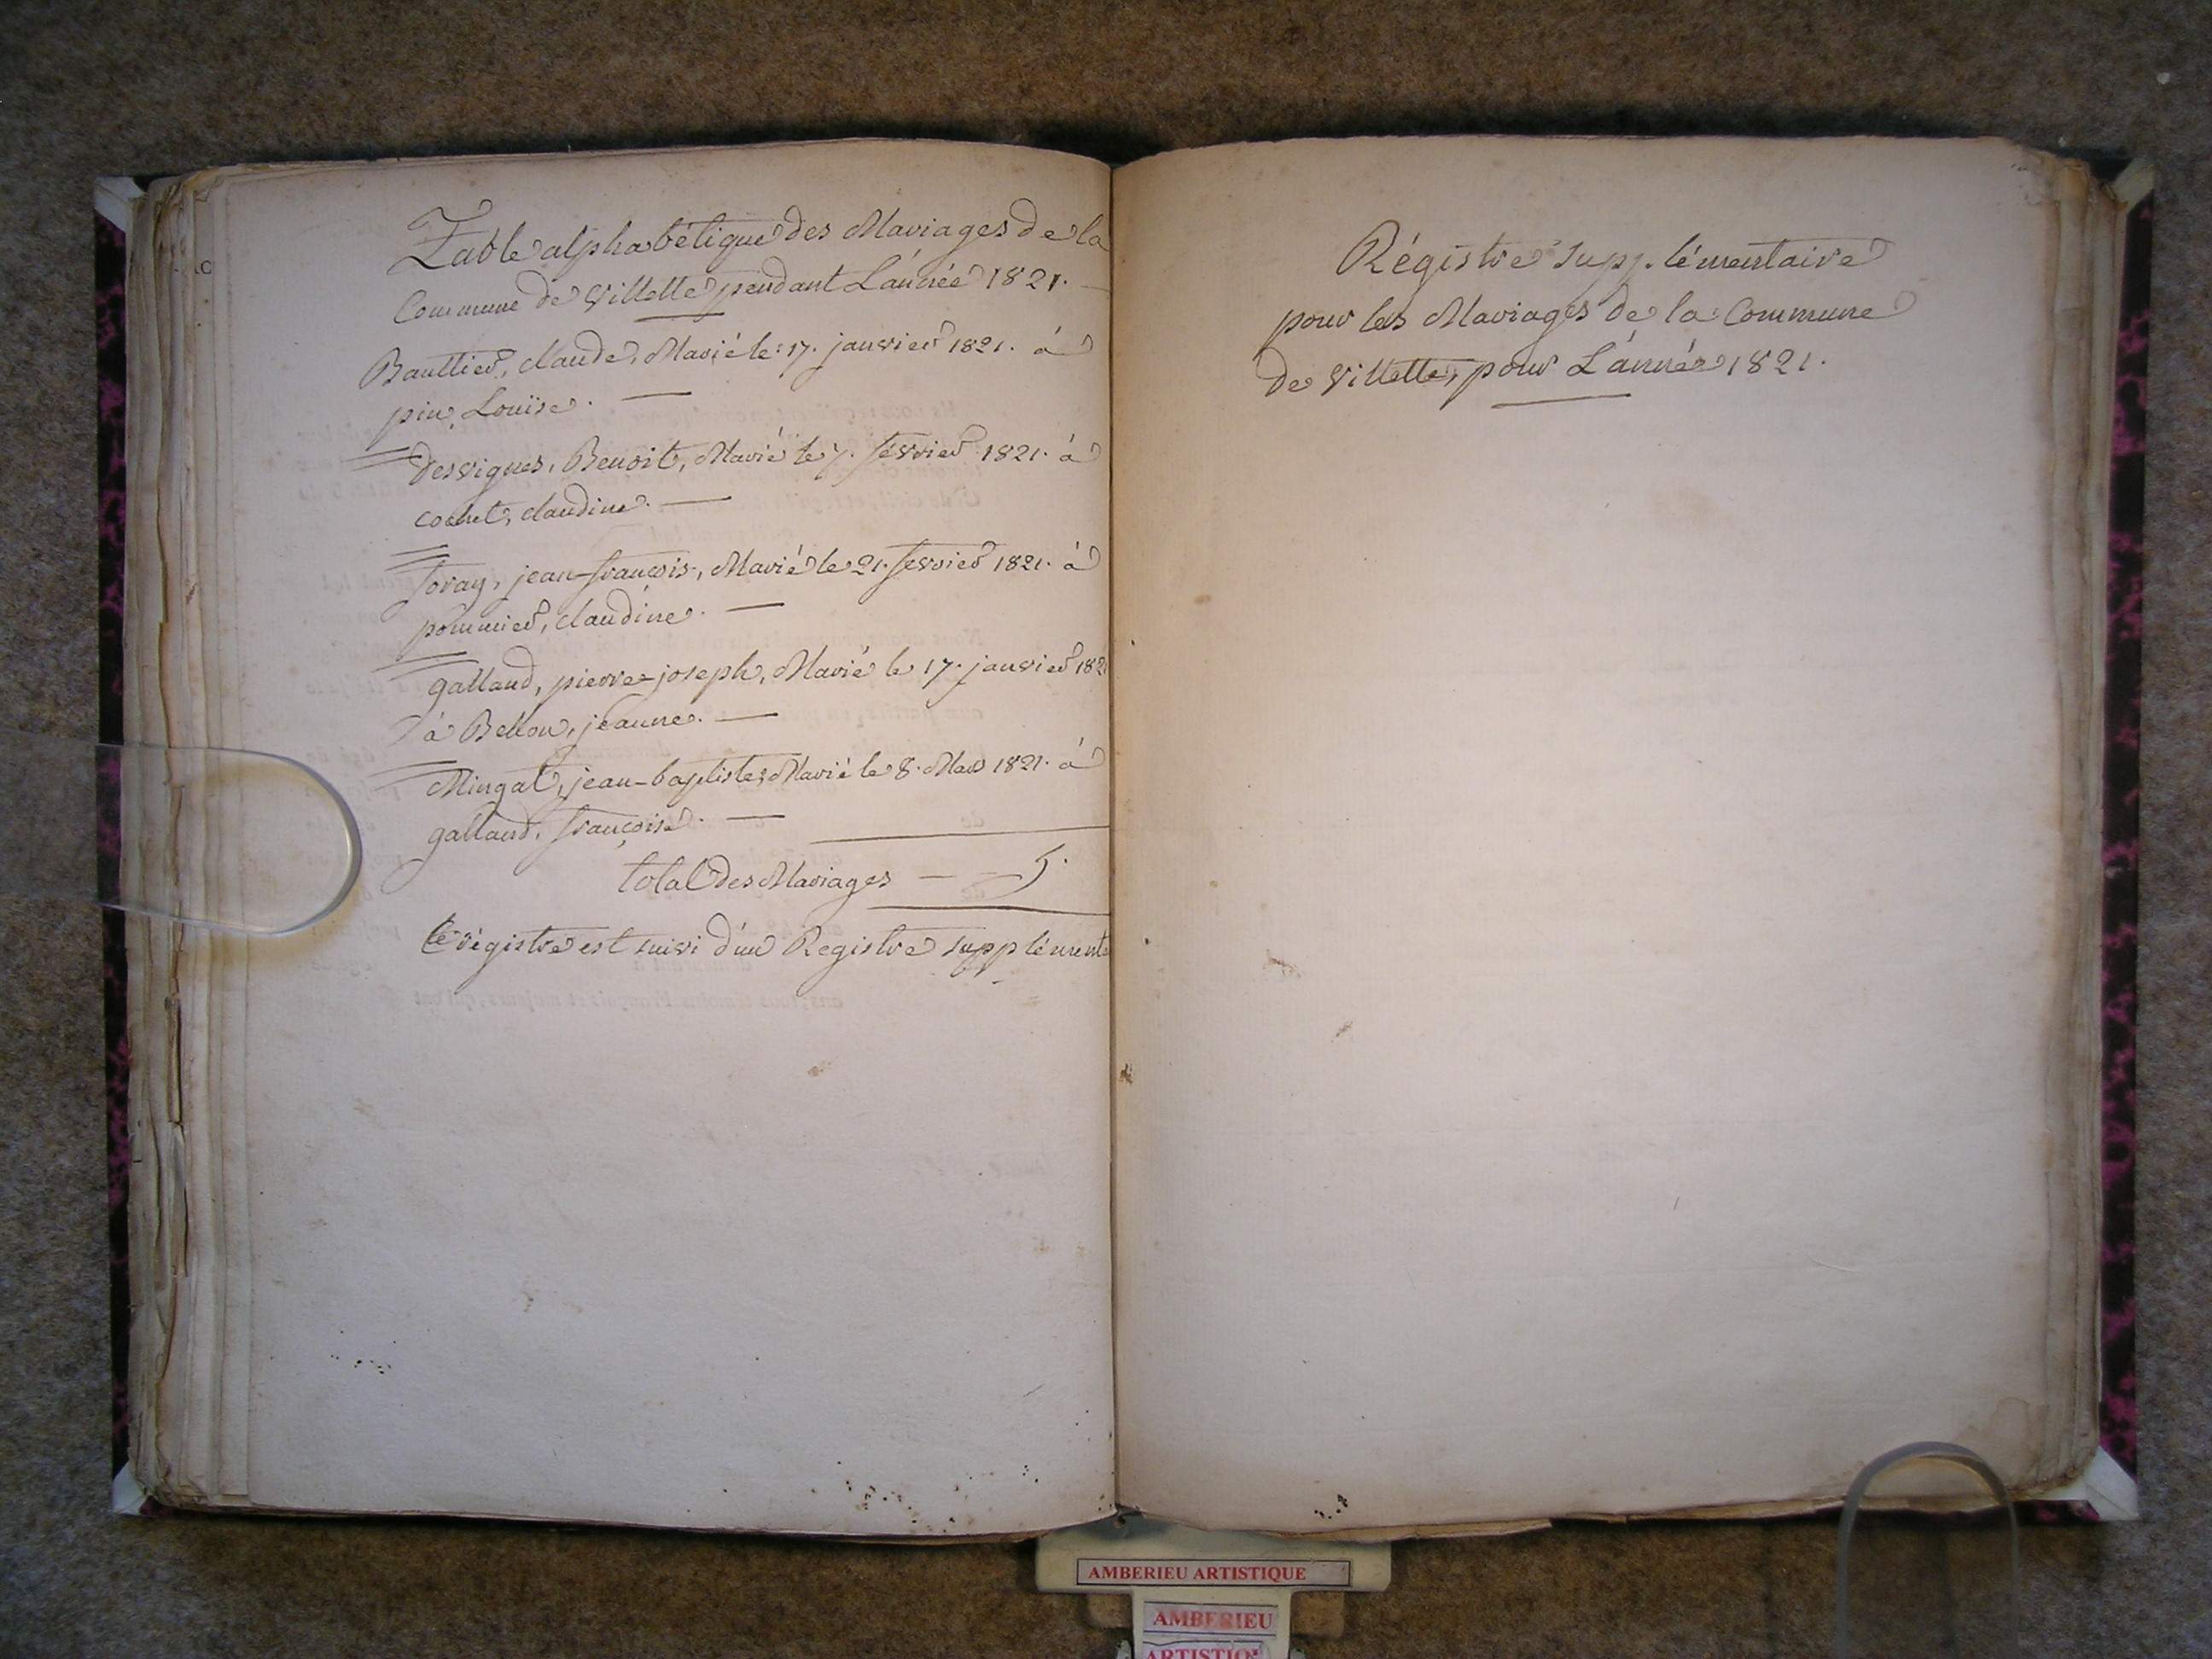 Table alphabétique des Mariages de la
Commune de Villette pendant L'année 1821.
Bauttier, claude, Marié le 17. janvier 1821. à
pin, Louise.
desvignes, Benoit, Marié le 7. février 1821. à
cochet, claudine.
foray, jean-françois, Marié le 21. fevrier 1821. à
pommier, claudine.
galland, pierre-joseph, Marié le 17. janvier 1821
à Bellon, jeanne.
Mingat, jean-baptiste, Marié le 8. Mars 1821. à
galland, françoise.
total des Mariages — — 5.
Ce régistre est suivi d'un Registre supplément
Régistre supplémentaire
pour les Mariages de la Commune
de Villette, pour L'année 1821.
AMBERIEU ARTISTIQUE
AMBERIEU